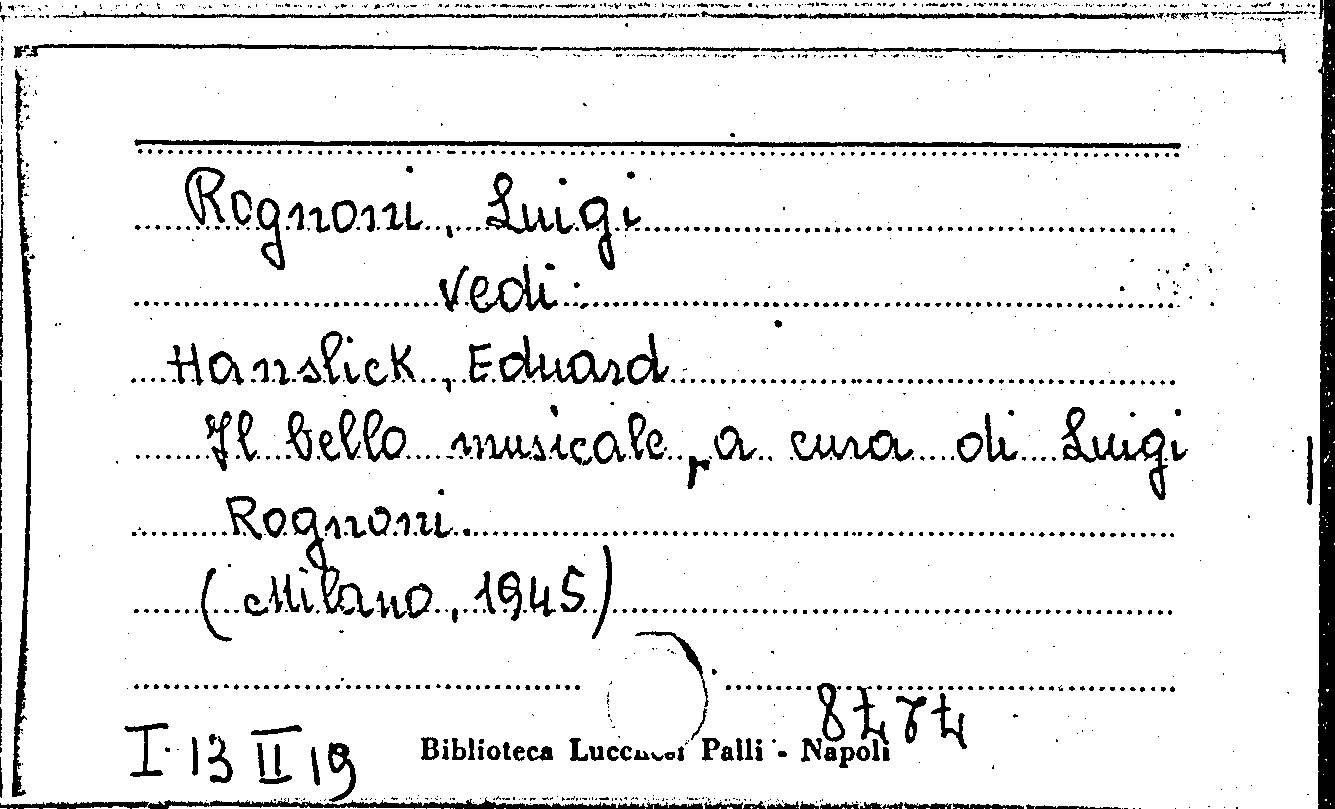 Rognoni, Luigi
Vedi:
Hanslick, Eduard
Il bello musicale, a cura di Luigi
Rognoni.
(Milano, 1945)
I 13 II 19
Biblioteca Lucchesi Palli - Napoli